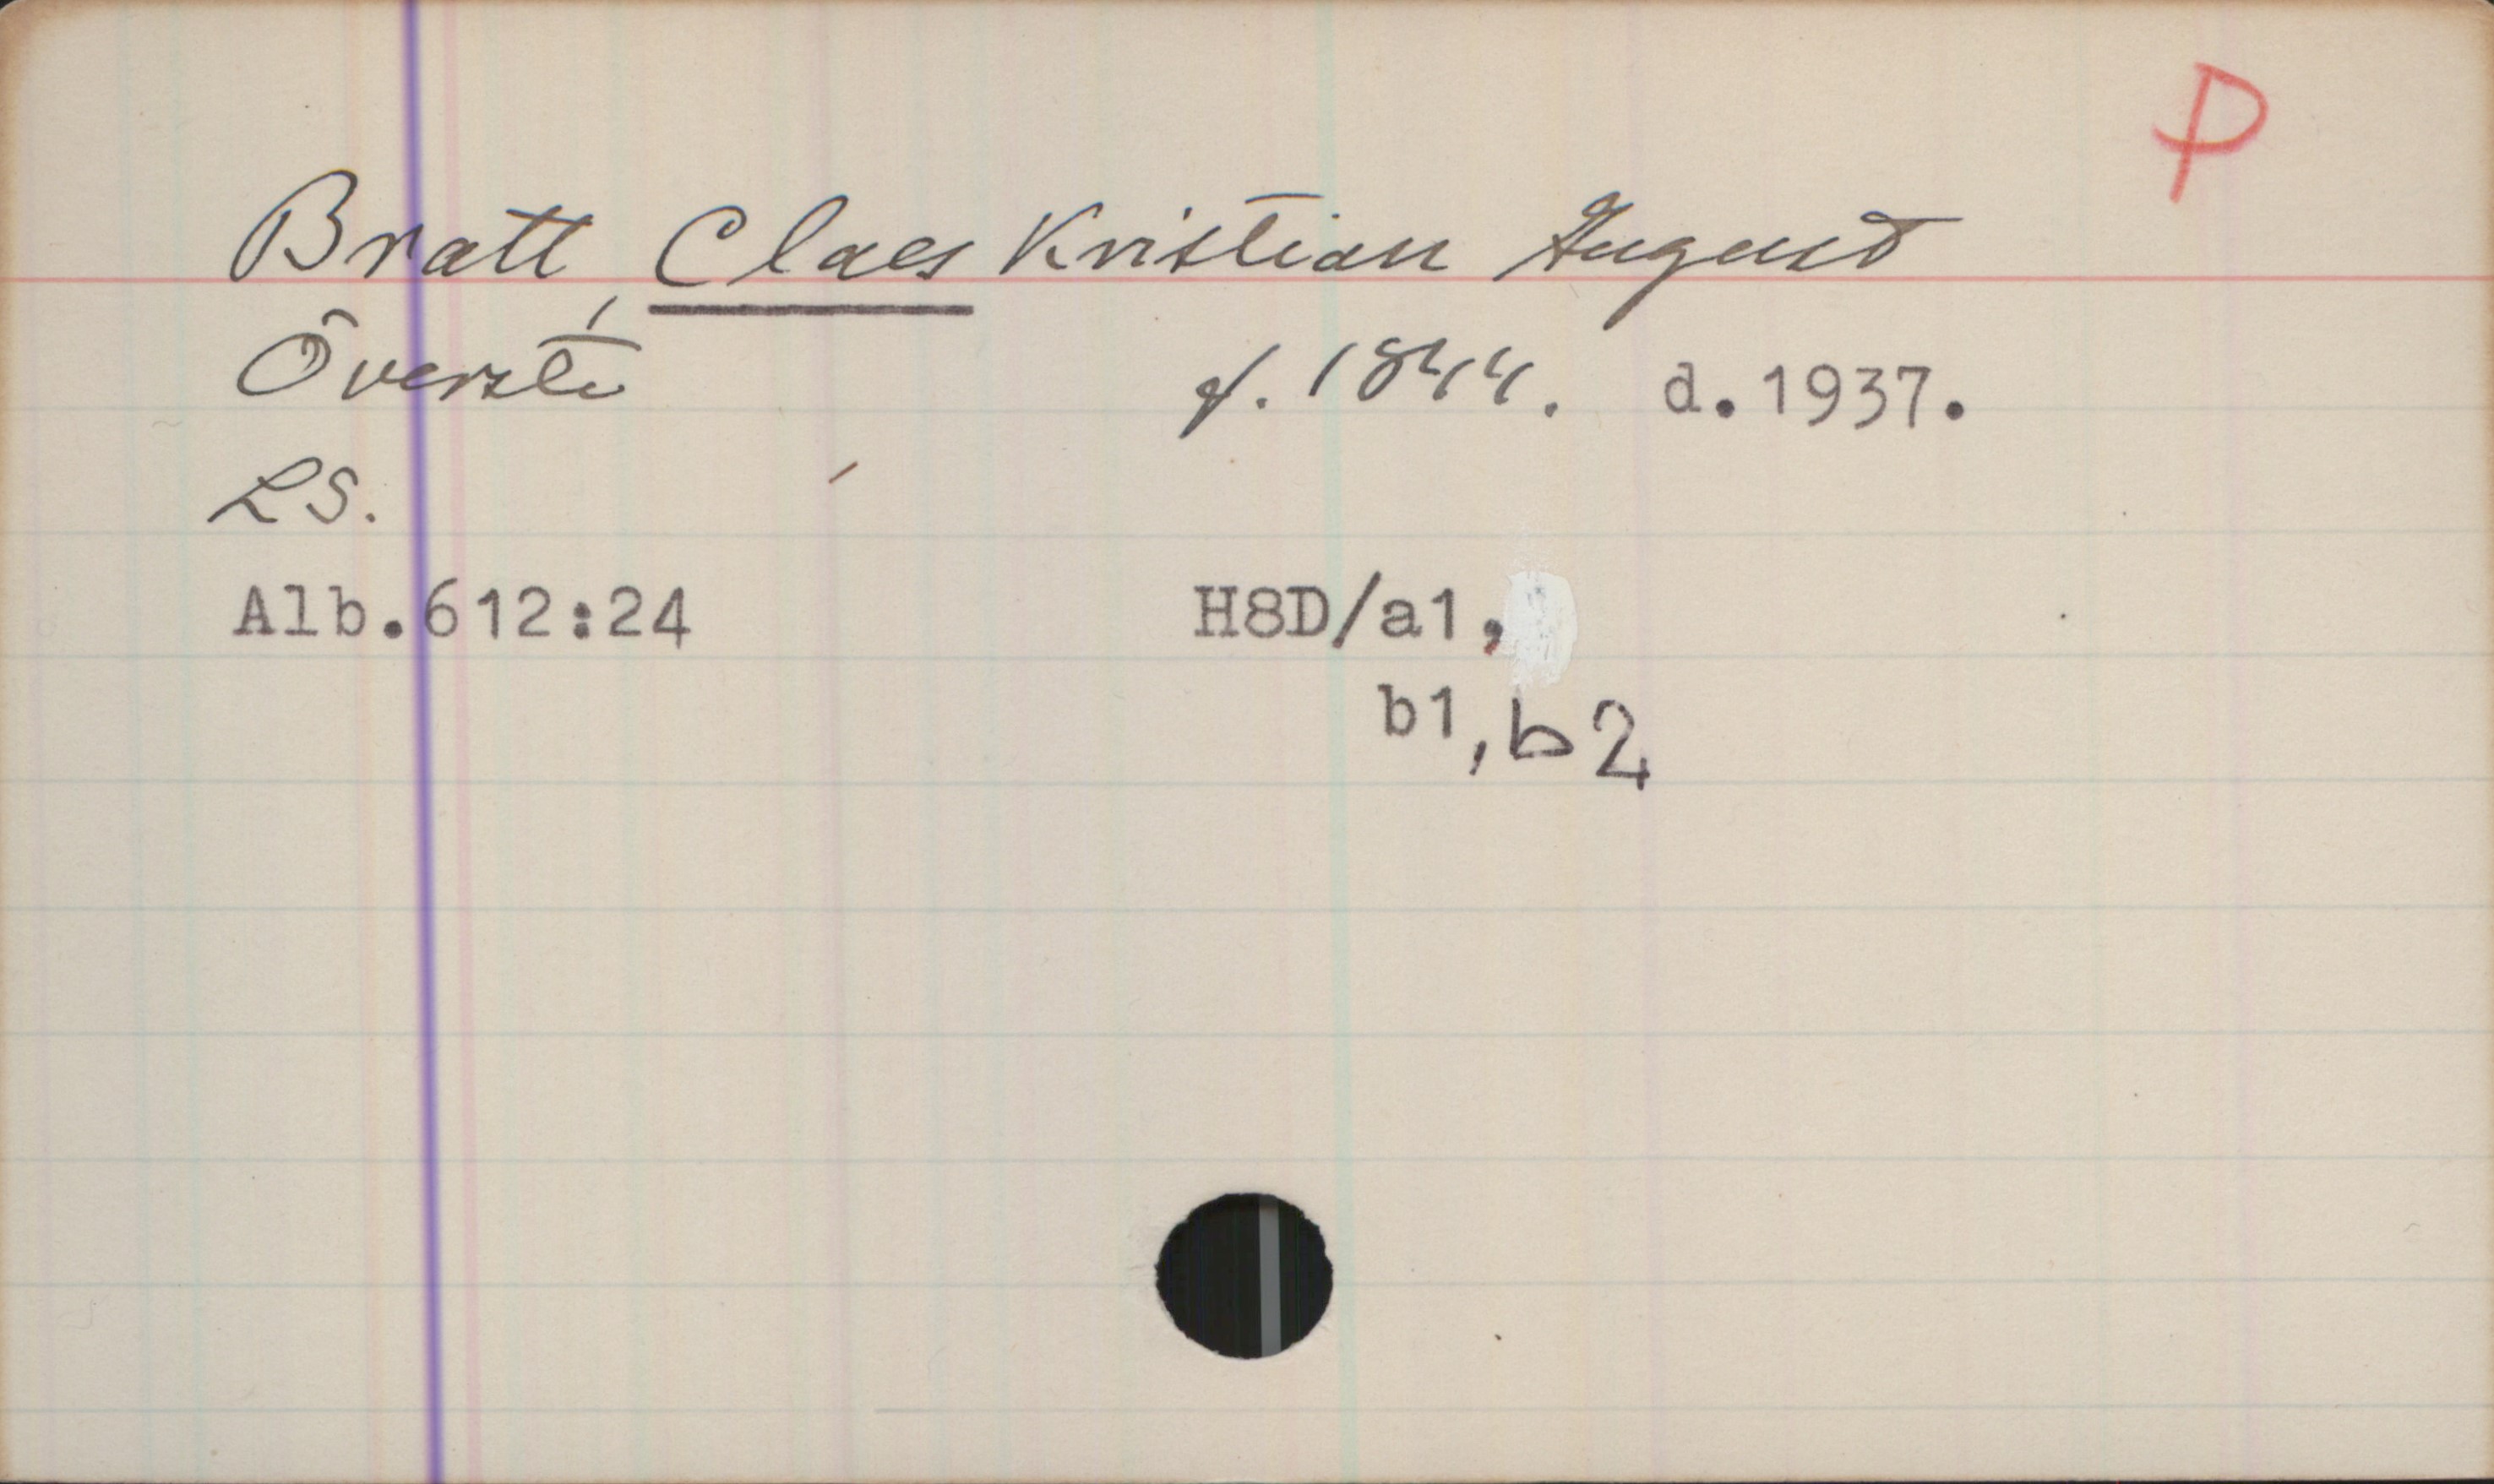 P
Bratt, Claes Kristian August
Överste f. 1844. d.1937.
LS.
Alb.612:24 H8D/a1,
b1, b2